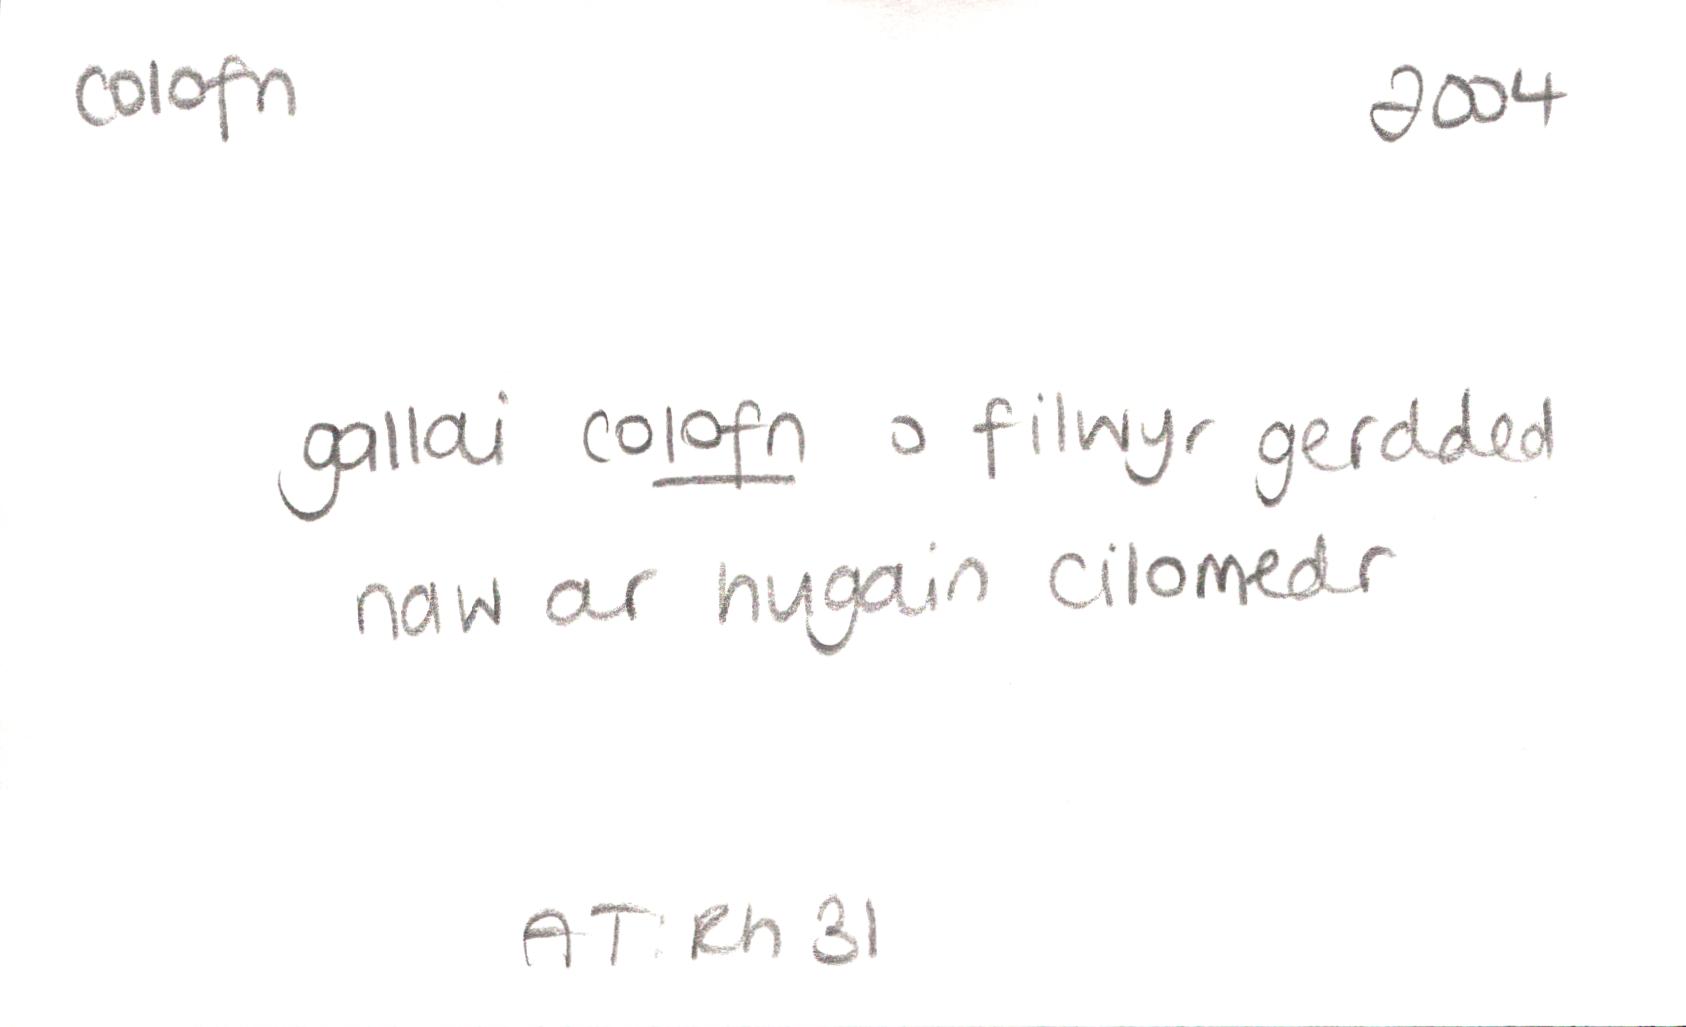 colofn 2004
gallai colofn o filwyr gerdded
naw ar hugain cilomedr
AT: Rh 31